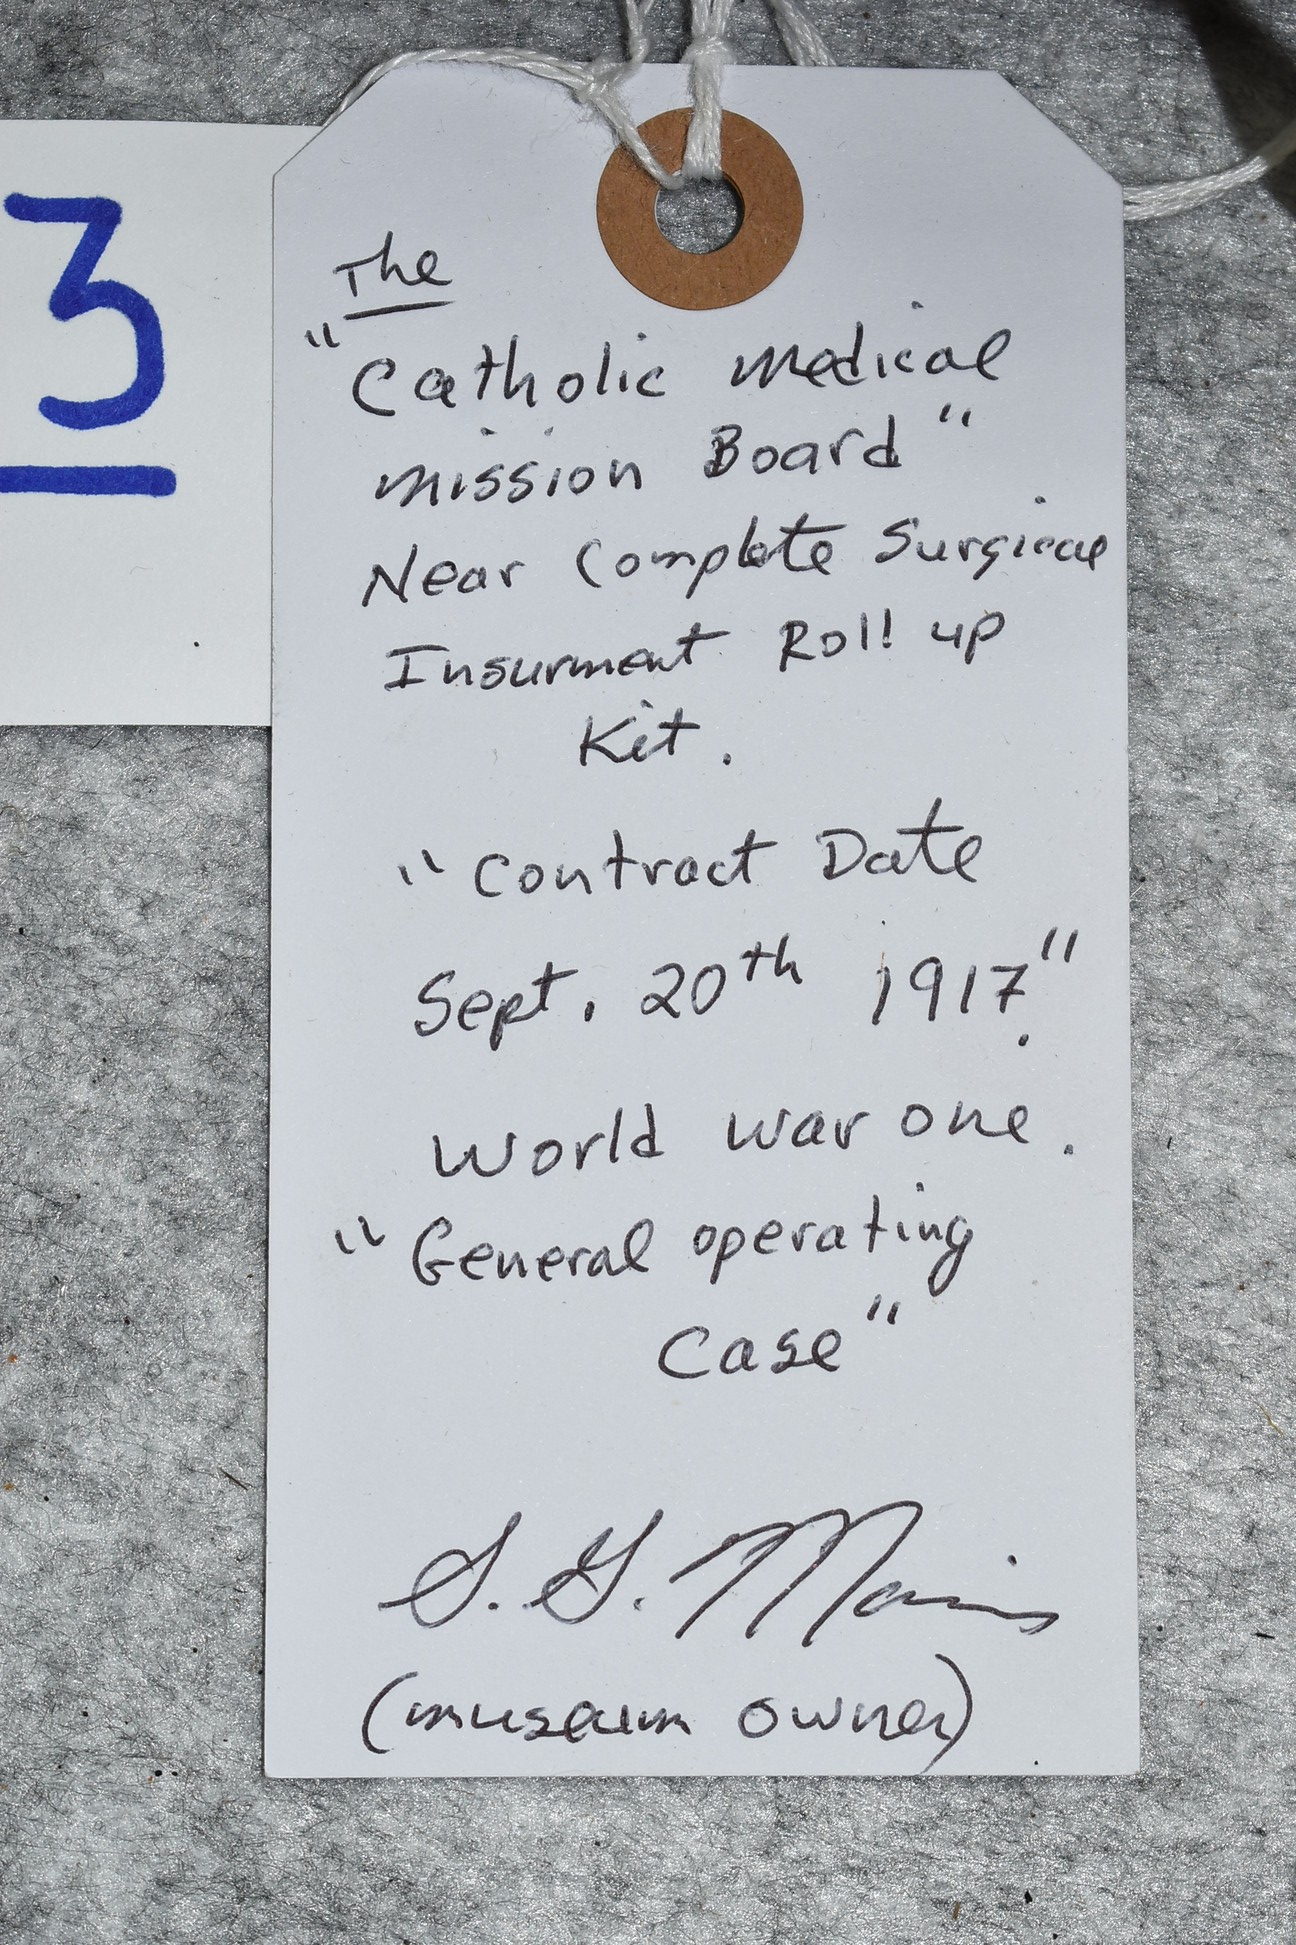 3
The
"Catholic medical
mission Board"
Near Complete Surgical
Insurment Roll up
Kit.
"Contract Date
Sept. 20th 1917."
World war one.
"General operating
Case"
S. G. Morris
(museum owner)